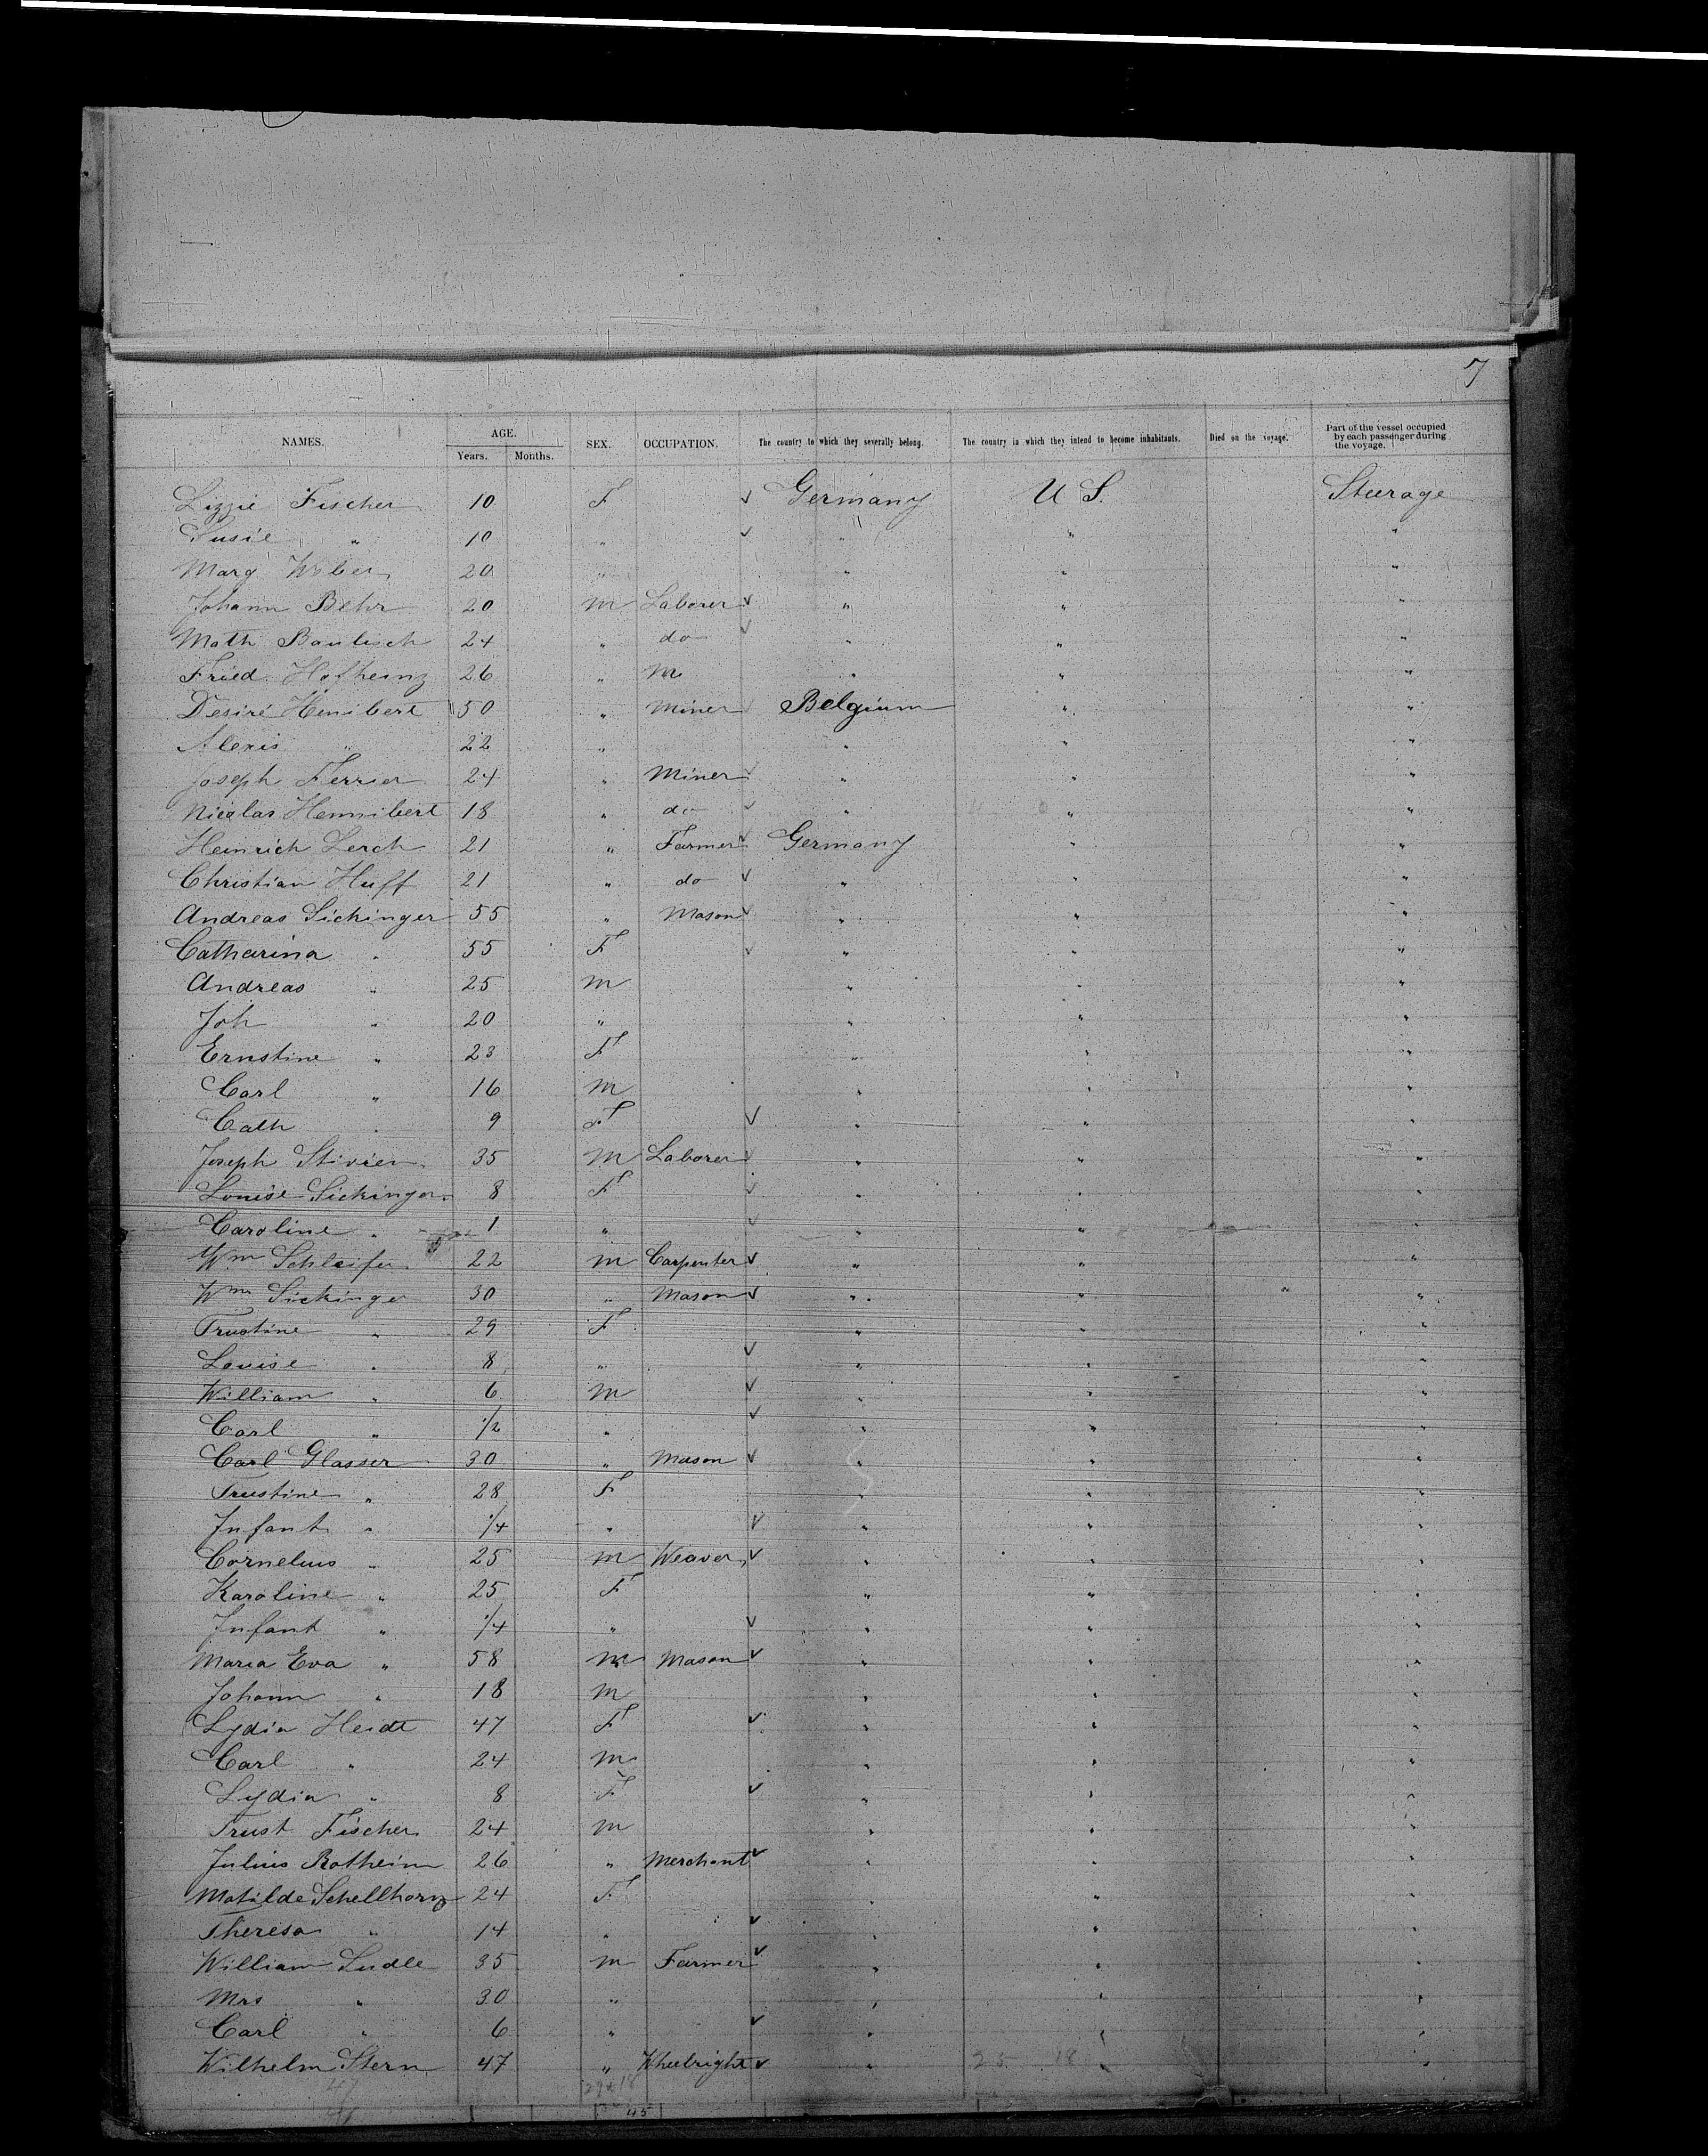 7
NAMES. AGE. Years. Months. SEX. OCCUPATION. The country to which they severally belong. The country in which they intend to become inhabitants. Died on the voyage. Part of the vessel occupied by each passenger during the voyage.
Lizzie Fischer 10 F ✓ Germany U S. Steerage
Susie " 10 " ✓ " " "
Marg Weber 20 " " " "
Johann Behr 20 m Laborer ✓ " " "
Math Bautisch 24 " do ✓ " " "
Fried. Hofheinz 26 " m " " "
Desiré Henibert 50 " Miner ✓ Belgium " "
Alexis " 22 " " " "
Joseph Ferrier 24 " Miner ✓ " " "
Nicolas Hennibert 18 " do ✓ " " "
Heinrich Lerch 21 " Farmer ✓ Germany " "
Christian Huff 21 " do ✓ " " "
Andreas Sickinger 55 " Mason ✓ " " "
Catharina " 55 F ✓ " " "
Andreas " 25 m " " "
Joh " 20 " " " "
Ernstine " 23 F " " "
Carl " 16 m " " "
Cath " 9 F ✓ " " "
Joseph Stivien 35 m Laborer ✓ " " "
Louise Sickinger 8 F ✓ " " "
Caroline " 1 " ✓ " " "
Wm Schleifer 22 m Carpenter ✓ " " "
Wm Sickinge 30 " Mason ✓ " " " "
Trustine " 29 F " " "
Louise " 8 " ✓ " " "
William " 6 m ✓ " " "
Carl " 1/2 " ✓ " " "
Carl Glasser 30 " Mason ✓ " " "
Trustine " 28 F " " "
Infant " 1/4 " ✓ " " "
Cornelius " 25 m Weaver ✓ " " "
Karoline " 25 F " " "
Infant " 1/4 " ✓ " " "
Maria Eva " 58 m Mason ✓ " " "
Johann " 18 m " " "
Lydia Heidt 47 F ✓ " " "
Carl " 24 m " " "
Lydia " 8 F ✓ " " "
Trust Fischer 24 m " " "
Julius Rotheim 26 " Merchant ✓ " " "
Matilde Schellhorn 24 F " " "
Theresa " 14 " ✓ " " "
William Ludle 35 m Farmer ✓ " " "
Mrs " 30 " " " "
Carl " 6 " ✓ " " "
Wilhelm Stern 47 " Wheelright ✓ " 25 18 " "
47 29+18
45